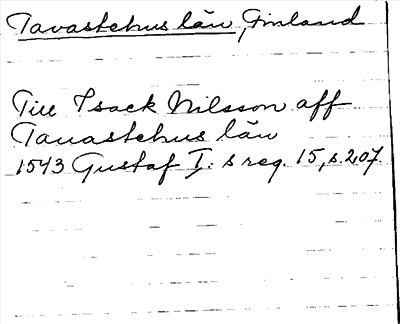 Tavastehus län, Finland
Till Isack Nilsson aff
Tauastehus län
1543 Gustaf I:s reg. 15, s. 207.